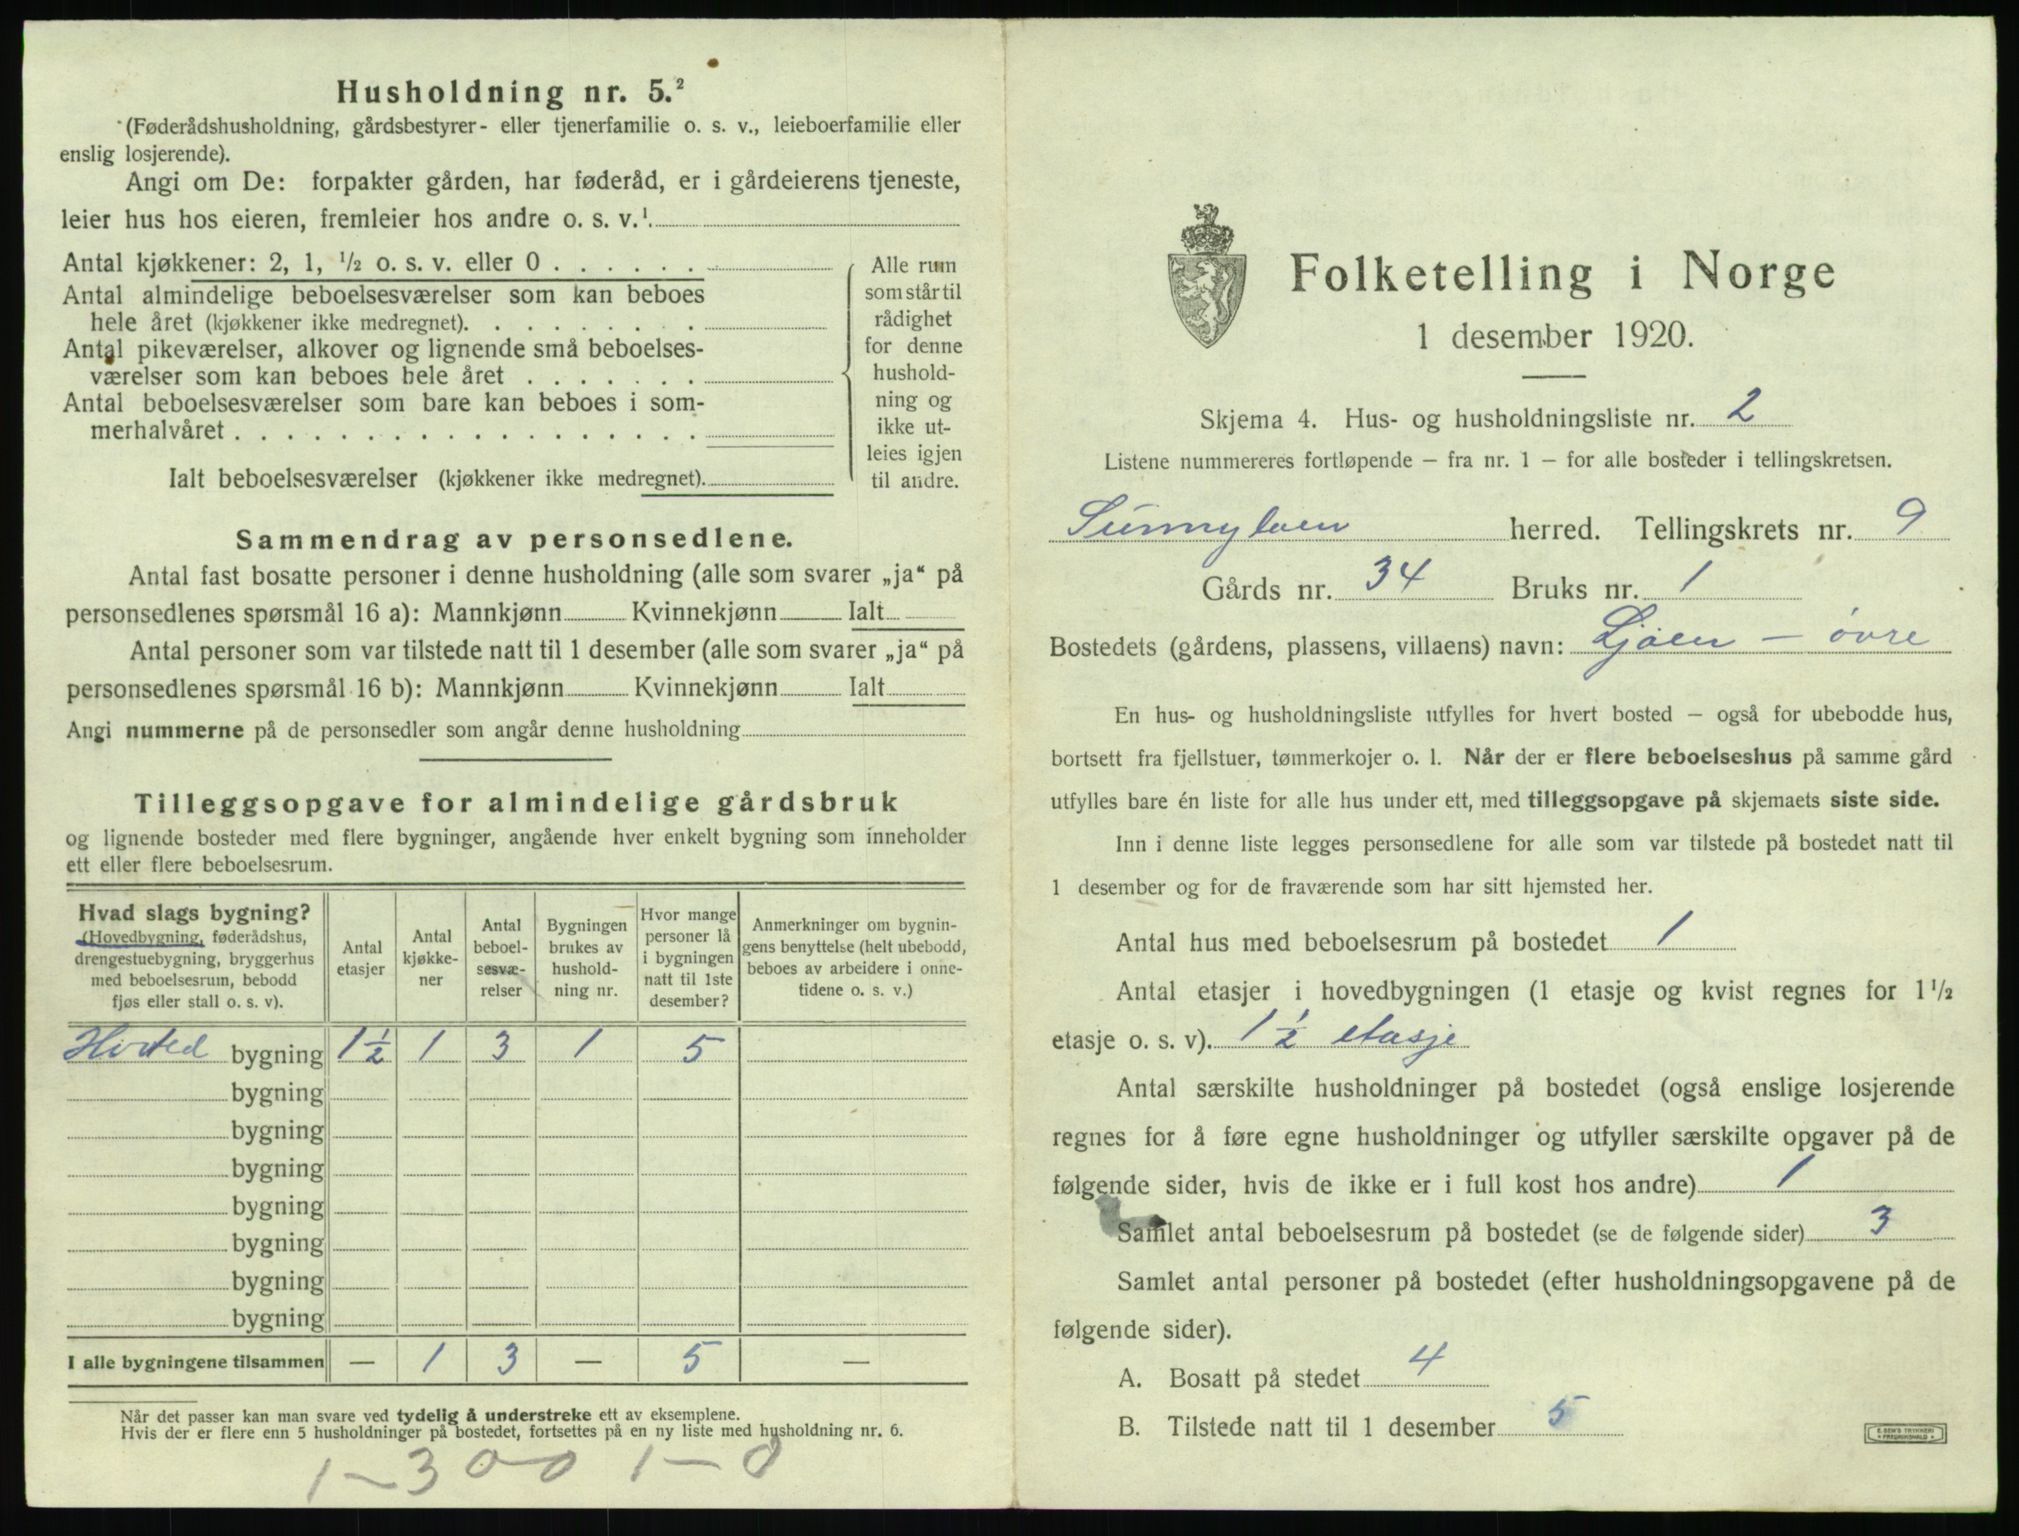 Husholdning nr. 5.²
(Føderådshusholdning, gårdsbestyrer- eller tjenerfamilie o. s. v., leieboerfamilie eller
enslig losjerende).
Angi om De: forpakter gården, har føderåd, er i gårdeierens tjeneste,
leier hus hos eieren, fremleier hos andre o. s. v.¹
Antal kjøkkener: 2, 1, ½ o. s. v. eller 0 . . . . . .
Antal almindelige beboelsesværelser som kan beboes
hele året (kjøkkener ikke medregnet). . . . . . . . .
Antal pikeværelser, alkover og lignende små beboelses-
værelser som kan beboes hele året . . . . . . .
Antal beboelsesværelser som bare kan beboes i som-
merhalvåret . . . . . . . . . . . . . . . . . .
Ialt beboelsesværelser (kjøkkener ikke medregnet).
Alle rum
som står til
rådighet
for denne
hushold-
ning og
ikke ut-
leies igjen
til andre.
Sammendrag av personsedlene.
Antal fast bosatte personer i denne husholdning (alle som svarer „ja“ på
personsedlenes spørsmål 16 a): Mannkjønn Kvinnekjønn Ialt
Antal personer som var tilstede natt til 1 desember (alle som svarer „ja“ på
personsedlenes spørsmål 16 b): Mannkjønn Kvinnekjønn Ialt
Angi nummerne på de personsedler som angår denne husholdning
Tilleggsopgave for almindelige gårdsbruk
og lignende bosteder med flere bygninger, angående hver enkelt bygning som inneholder
ett eller flere beboelsesrum.
Hvad slags bygning?
(Hovedbygning, føderådshus,
drengestuebygning, bryggerhus
med beboelsesrum, bebodd
fjøs eller stall o. s. v).
Antal
etasjer
Antal
kjøkke-
ner
Antal
beboel-
sesvæ-
relser
Bygningen
brukes av
hushold-
ning nr.
Hvor mange
personer lå
i bygningen
natt til 1ste
desember?
Anmerkninger om bygnin-
gens benyttelse (helt ubebodd,
beboes av arbeidere i onne-
tidene o. s. v.)
Hoved bygning 1½ 1 3 1 5
bygning
bygning
bygning
bygning
bygning
bygning
bygning
I alle bygningene tilsammen — 1 3 — 5 —
Når det passer kan man svare ved tydelig å understreke ett av eksemplene.
Hvis der er flere enn 5 husholdninger på bostedet, fortsettes på en ny liste med husholdning nr. 6.
1 – 3 0 0 1 – 0
Folketelling i Norge
1 desember 1920.
Skjema 4. Hus- og husholdningsliste nr. 2
Listene nummereres fortløpende – fra nr. 1 – for alle bosteder i tellingskretsen.
Sunnylven herred. Tellingskrets nr. 9
Gårds nr. 34 Bruks nr. 1
Bostedets (gårdens, plassens, villaens) navn: Ljøen – øvre
En hus- og husholdningsliste utfylles for hvert bosted – også for ubebodde hus,
bortsett fra fjellstuer, tømmerkojer o. l. Når der er flere beboelseshus på samme gård
utfylles bare én liste for alle hus under ett, med tilleggsopgave på skjemaets siste side.
Inn i denne liste legges personsedlene for alle som var tilstede på bostedet natt til
1 desember og for de fraværende som har sitt hjemsted her.
Antal hus med beboelsesrum på bostedet 1
Antal etasjer i hovedbygningen (1 etasje og kvist regnes for 1½
etasje o. s. v). 1½ etasje
Antal særskilte husholdninger på bostedet (også enslige losjerende
regnes for å føre egne husholdninger og utfyller særskilte opgaver på de
følgende sider, hvis de ikke er i full kost hos andre) 1
Samlet antal beboelsesrum på bostedet (se de følgende sider) 3
Samlet antal personer på bostedet (efter husholdningsopgavene på de
følgende sider).
A. Bosatt på stedet 4
B. Tilstede natt til 1 desember 5
E. SEM'S TRYKKERI
FREDRIKSHALD